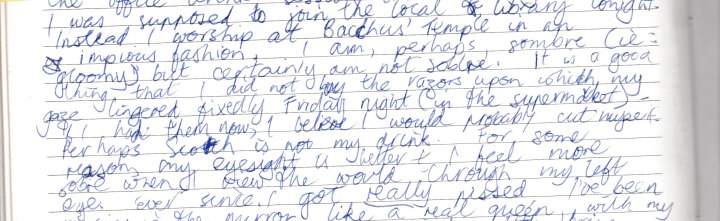 the office
I was supposed to join the local library tonight.
Instead I worship at Bacchus' Temple in an
impious fashion. I am, perhaps, sombre (ie =
gloomy) but certainly am not sober. It is a good
thing that I did not buy the razors upon which my
gaze lingered fixedly Friday night (in the supermarket) -
if I had them now, I believe I would probably cut myself.
Perhaps Scotch is not my drink. For some
reason, my eyesight is better & I feel more
sobre when I view the world through my left
eye. Ever since I got really pissed I've been
in the mirror like a real queen, with my